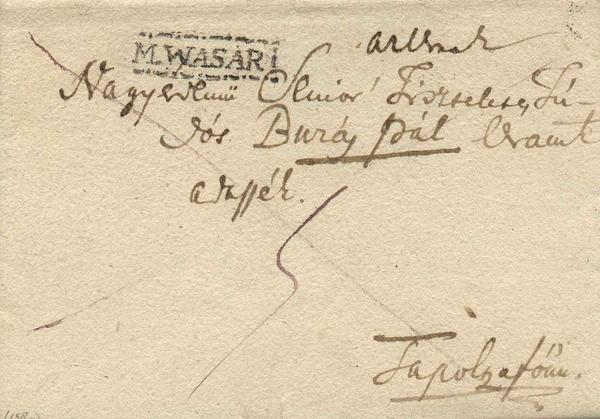 M.WASARI
Nagyérdemü Senior Tiszteletes, Tú-
dós Buráy Pál Uramk
adassék.
Tapolczafőnn.